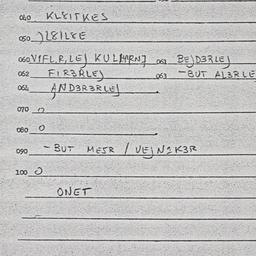 040 KLEITKES
050
060 VIFL,R,LEJ KULMARNJ 061 BEJD3RLEJ
062 FIR3RLEJ 063 -BUT AL3RLE
064 AND3R3RLEJ
070 0
080 0
090 -BUT MESR / VEJN2K3R
100 0
ONET